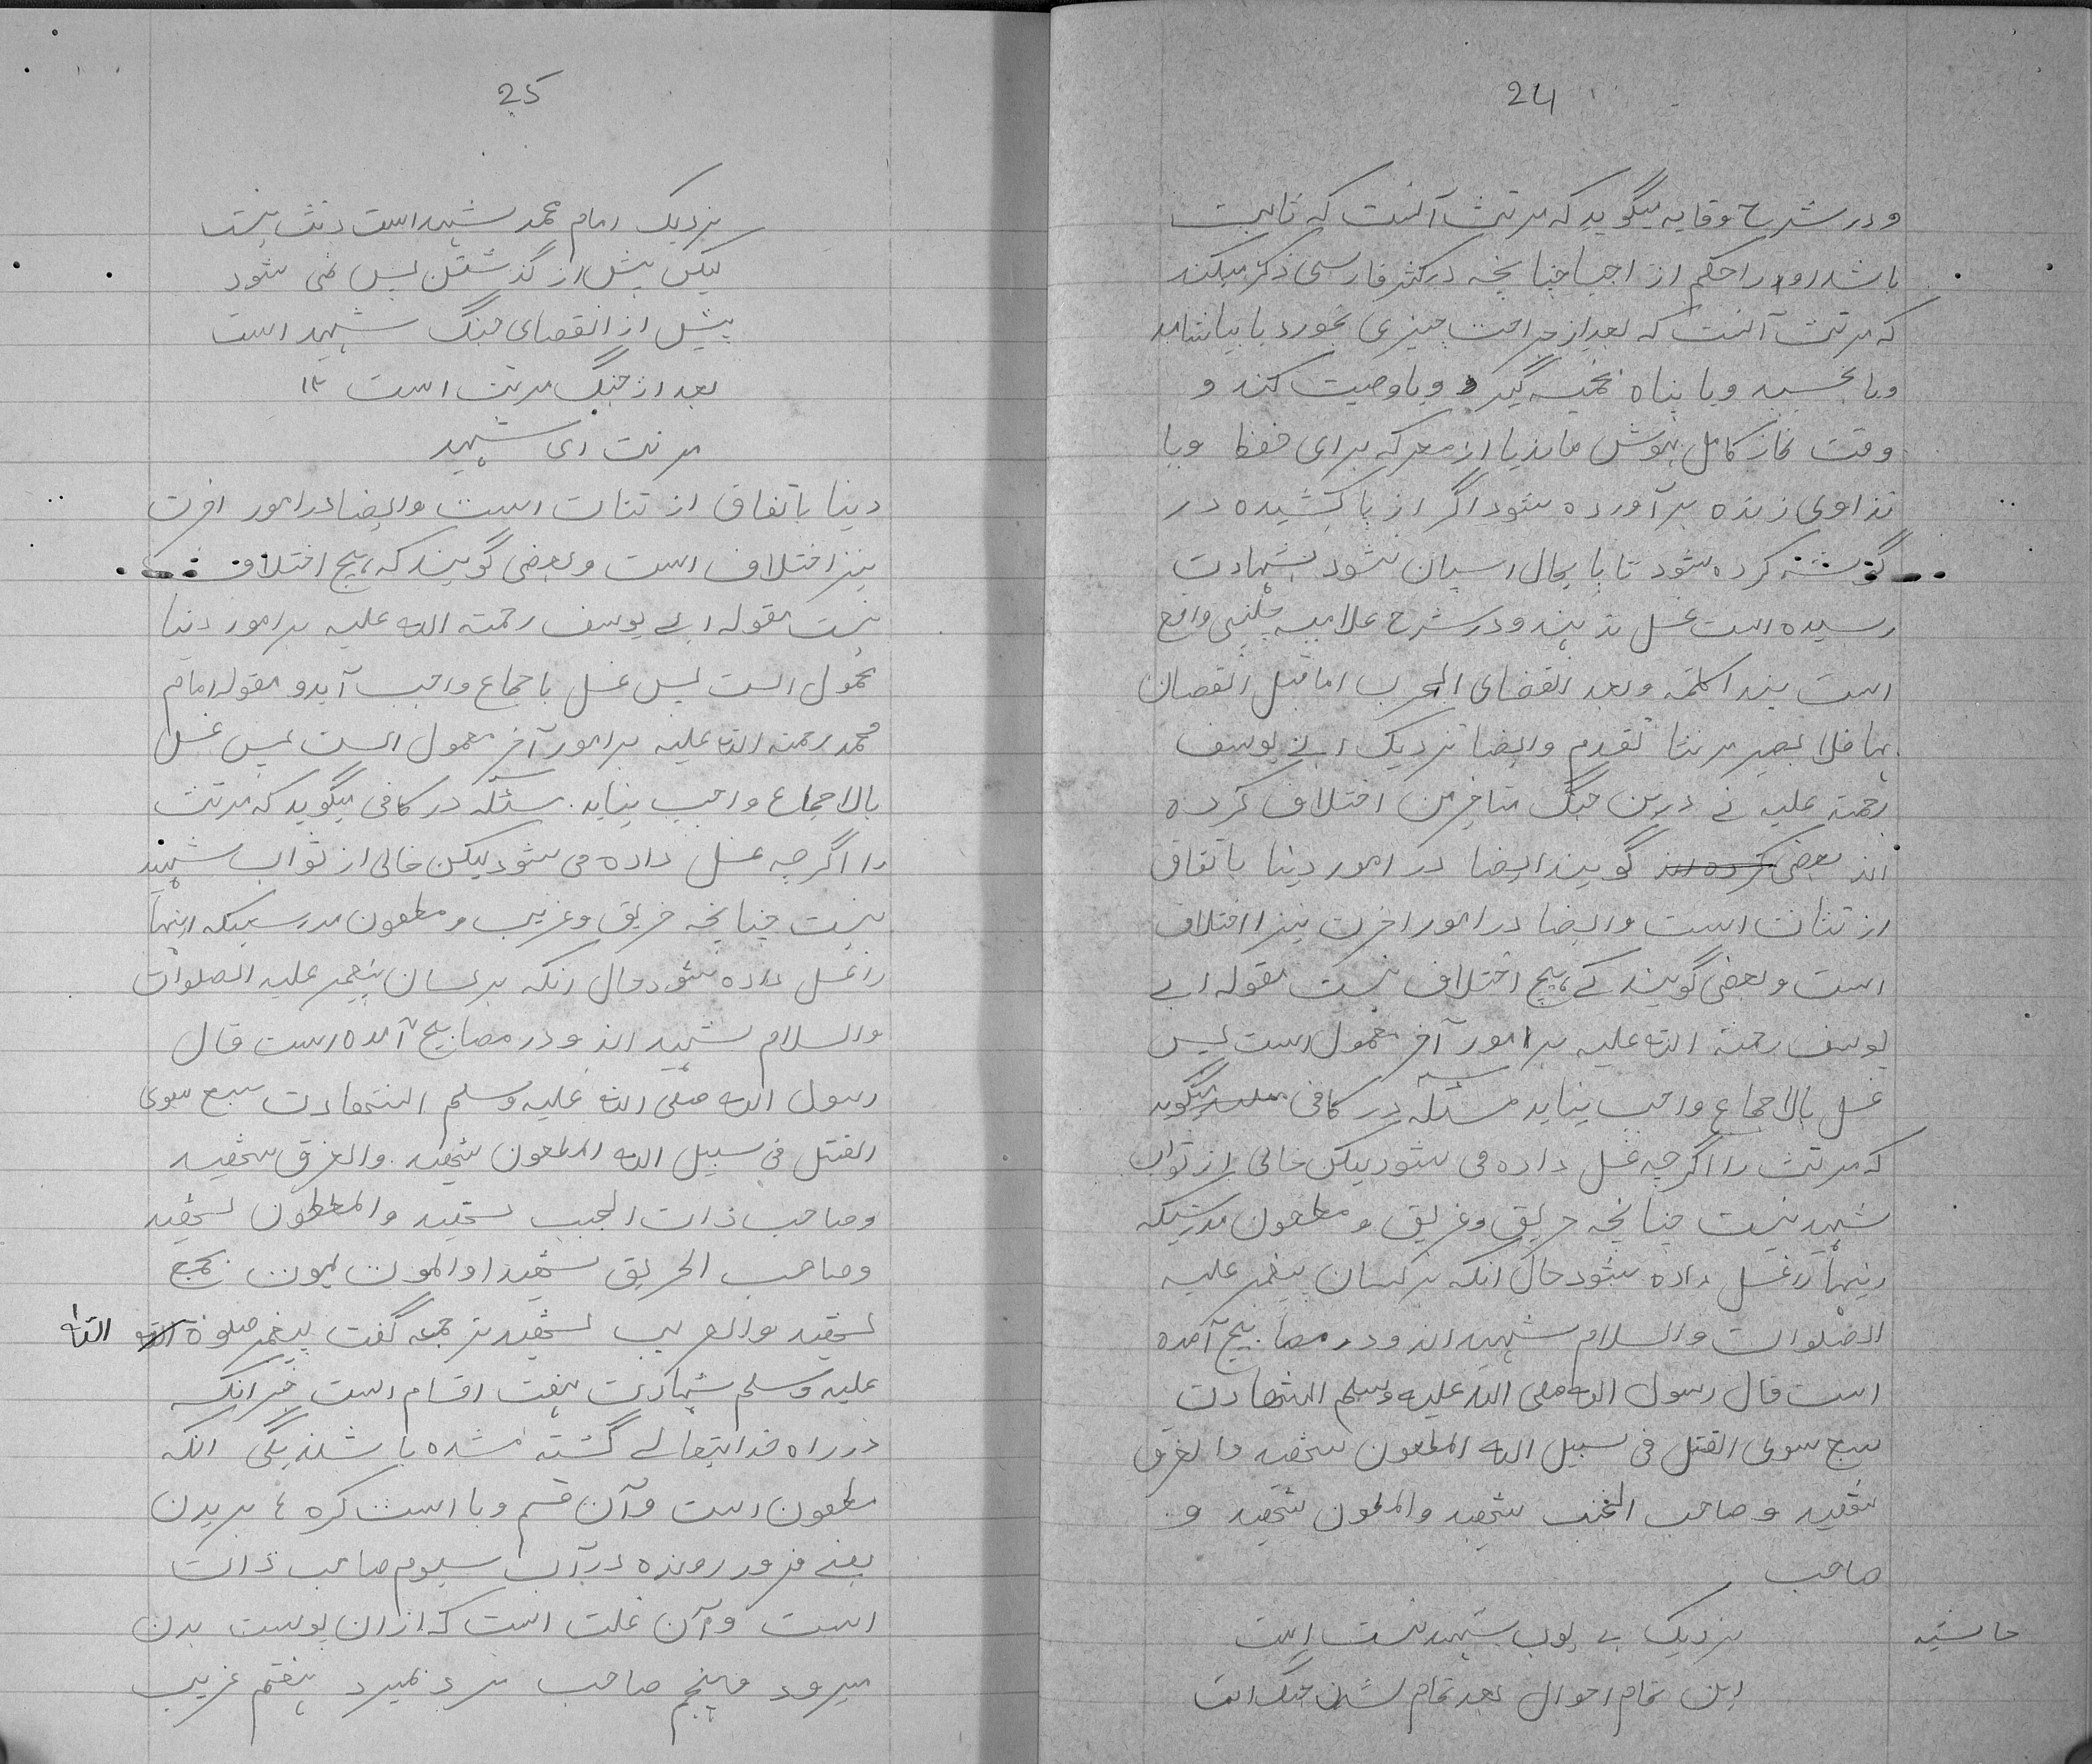 24
و در شرح وقایه میگوید که مرتث آنست که ثابت
باشد او را حکم از احیا چنانچه در کنز فارسی ذکر میکند
که مرتث آنست که بعد از جراحت چیزی بخورد یا بیاشامد
ویا بخسپد ویا پناه خیمه گیرد ویا وصیت کند و
وقت نماز کامل بهوش ماند یا از معرکه برای حفظ ویا
تداوی زنده برآورده شود اگر از پا کشیده در
گوشه کرده شود تا پا یمال اسپان نشود بشهادت
رسیده است غسل ندهند و در شرح علامیه چلپی واقع
است بعد انقضای الحرب اما قبل انقصان
بها فلا یصیر مرتثا تقدم وایضا نزدیک ابی یوسف
رحمة علیه نے درین جنگ متاخرین اختلاف کرده
اند بعضی کرده اند گویند ایضا در امور دینا باتفاق
از تثات است وایضا در امور اخرت نیز ااختلاف
است و بعضی گویند کے هیچ اختلاف نیست مقوله ابے
یوسف رحمة الله علیه بر امور آخر محمول است پس
غسل بالاجماع واجب نیاید مسئله در کافی میگوید
که مرتث را اگرچه غسل داده می شود لیکن خالی از ثواب
شهید نیست چنانچه حریق وغریق و مطعون مدرستیکه
اینها را غسل داده شود حال انکه بر لسان پیغمبر علیه
الصلوات والسلام شهید اند و در مصابیح آمده
است قال رسول الله صلی الله علیه وسلم الشهادت
سبع سوی القتل فی سبیل الله المطعون شهید والغرق
شهید و صاحب الجنب شهید والمطعون شهید و
صاحب
حاشیه نزدیک بے یوب شهید نیست است
این تمام احوال بعد تمام شدن جنگ است
25
نزدیک امام محمد شهید است
لیکن پیش از گذشتن پس نمی شود
پیش از انقصای جنگ شهید است
بعد از جنگ مرتث است ۱۲
مرتث ای شهید
دینا باتفاق از تثات است وایضا در امور اخرت
نیز اختلاف است و بعضی گویند که هیچ اختلاف
نیست مقوله ابے یوسف رحمته الله علیه بر امور دنیا
محمول است پس غسل باجماع واجب آید و مقوله امام
محمد رحمة الله علیه بر امور آخر محمول است پس غسل
بالاجماع واجب نیاید. مسئله در کافی میگوید که مرتث
را اگرچه غسل داده می شود لیکن خالی از ثواب شهید
نیست چنانچه حریق وغریب و مطعون مدرستیکه اینها
را غسل داده شود حال انکه بر لسان پیغمبر علیه الصلوات
والسلام شهید اند و در مصابیح آمده است قال
رسول الله صلی الله علیه وسلم الشهادت سبع سوی
القتل فی سبیل الله المطعون شهید. والغرق شهید
وصاحب ذات الجنب شهید والمطعون شهید
وصاحب الحریق شهید والموت یموت بجمع
شهید والغریب شهید ترجمه گفت پیغمبر صلوة الله الله
علیه وسلم شهادت هفت اقسام است خبر انکه
در راه خدایتعالے گشته شده باشند یکی انکه
مطعون است وآن قسم وبا است کره ٤ بریدن
یعنے فرور رونده در آب سیوم صاحب ذات
است وآن علت است که ازان پوست بدن
میرود وپنجم صاحب نمیرد هفتم غریب